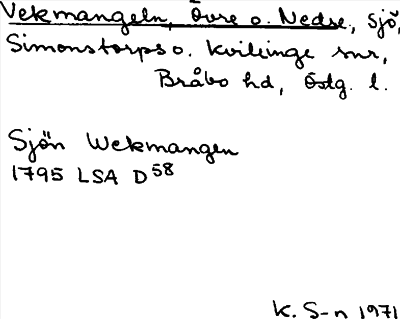 Vekmangeln, Övre o. Nedre, sjö,
Simonstorps o. Kvillinge snr,
Bråbo hd, Östg. l.
Sjön Wekmangen
1795 LSA D58
K. S-n 1971